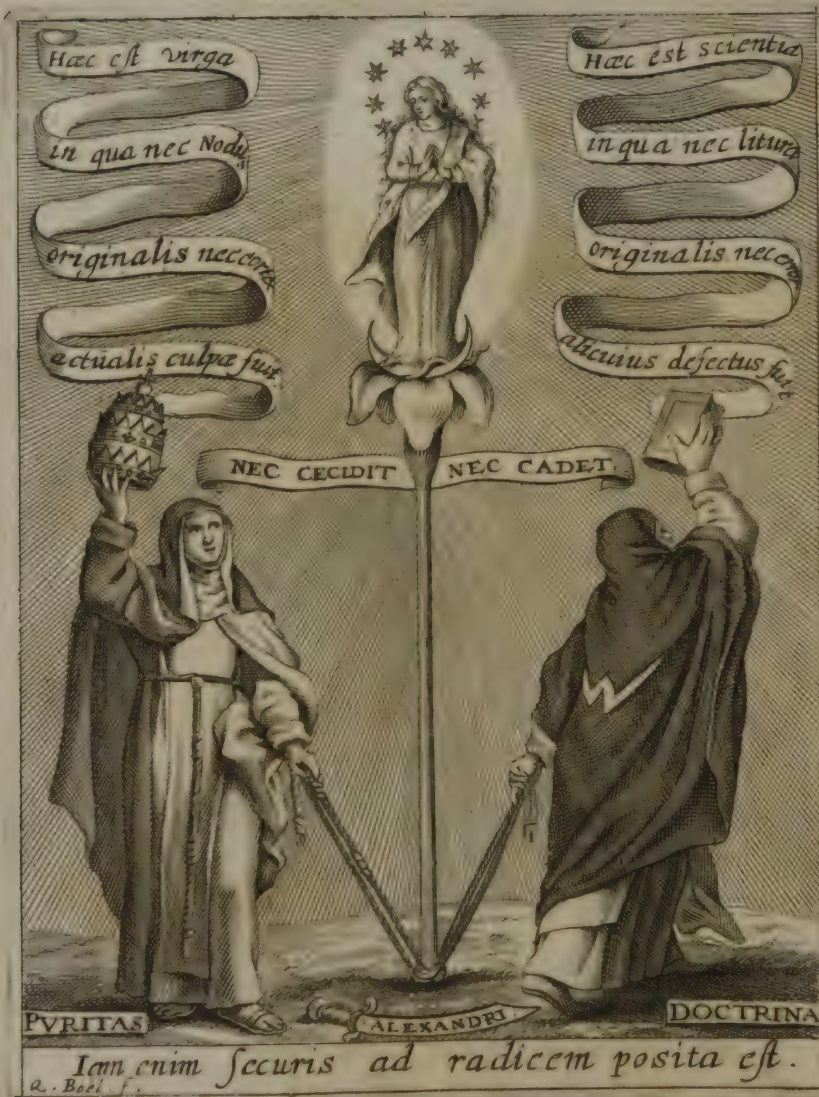 Hæc est virga
in qua nec Nodus
originalis nec cortex
actualis culpæ fuit.
Hæc est scientia
in qua nec litura
originalis nec error
alicuius defectus fuit
NEC CECIDIT NEC CADET.
PVRITAS
ALEXANDRI.
DOCTRINA
Iam enim securis ad radicem posita est.
a. Boei. f.